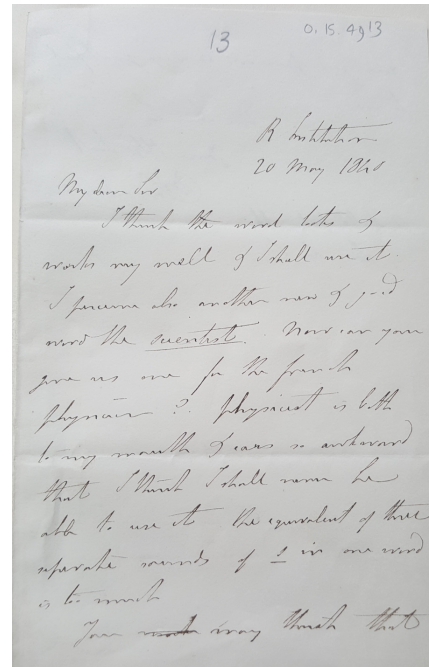 13
O. 15. 49 13
R Institution
20 May 1840
My dear Sir
I think the word looks &
works very well & I shall use it.
I perceive also another new & good
word the scientist. Now can you
give us one for the french
physicien? Physicist is both
to my mouth & ears so awkward
that I think I shall never be
able to use it. The equivalent of three
separate sounds of i in one word
is too much
You may think that